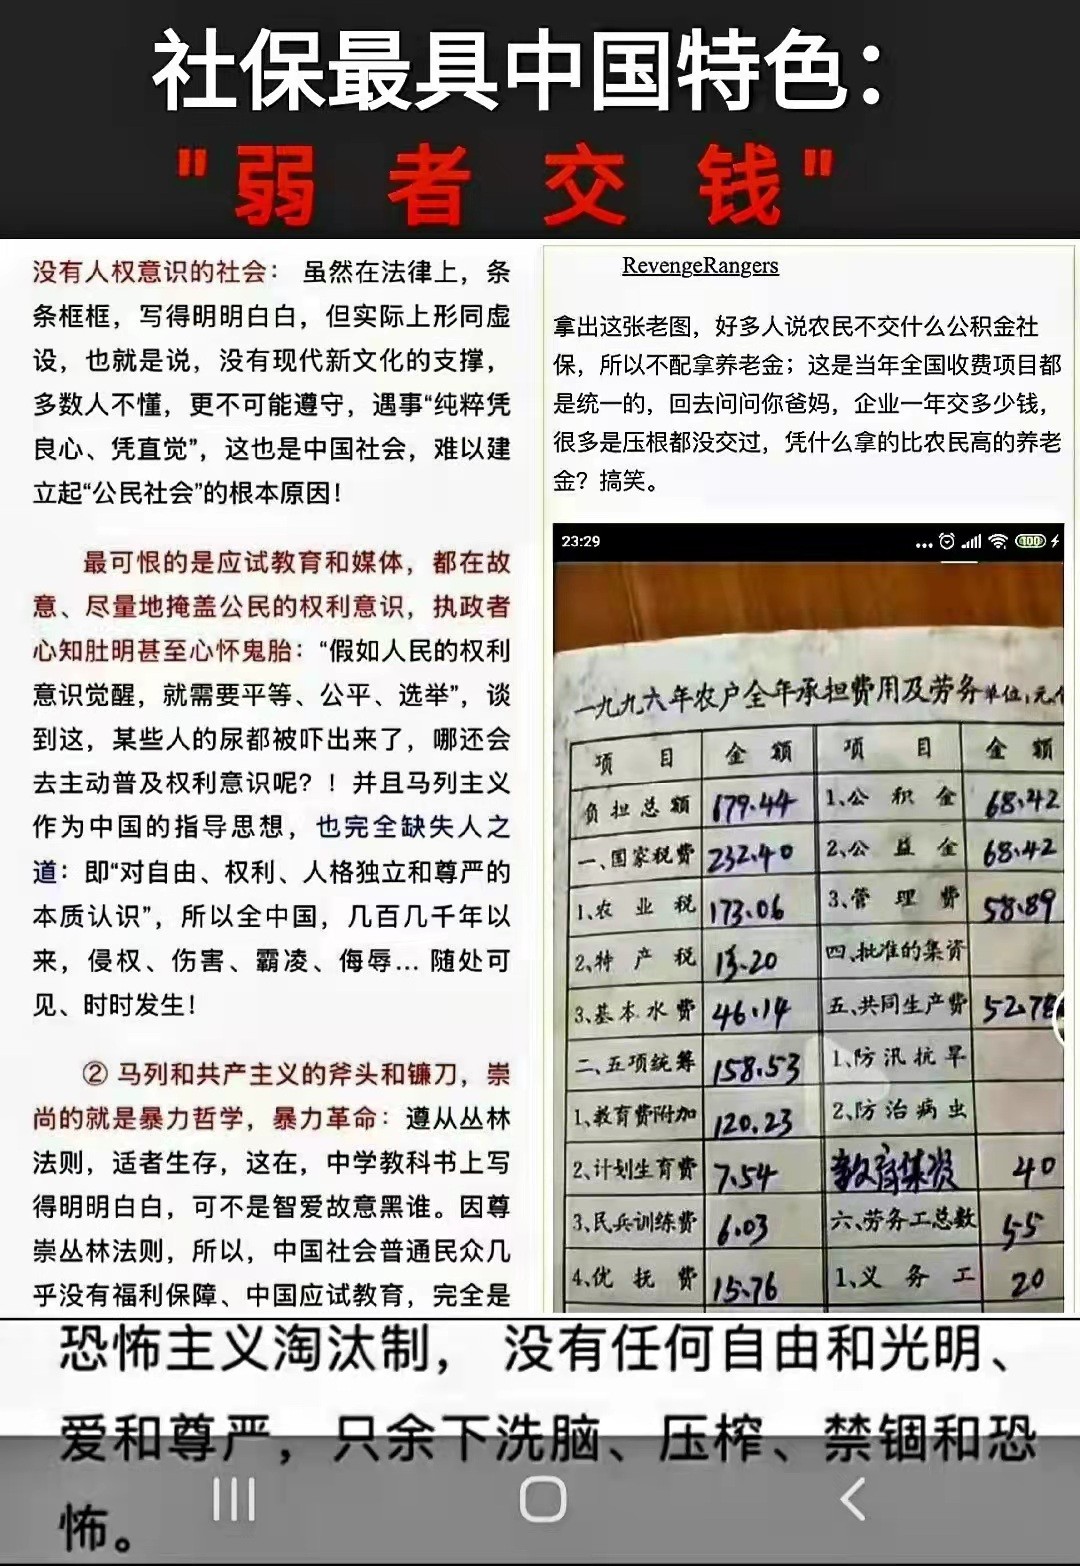 社保最具中国特色：
"弱者交钱"
没有人权意识的社会： 虽然在法律上，条
条框框，写得明明白白，但实际上形同虚
设，也就是说，没有现代新文化的支撑，
多数人不懂，更不可能遵守，遇事“纯粹凭
良心、凭直觉”，这也是中国社会，难以建
立起“公民社会”的根本原因！
最可恨的是应试教育和媒体，都在故
意、尽量地掩盖公民的权利意识，执政者
心知肚明甚至心怀鬼胎：“假如人民的权利
意识觉醒，就需要平等、公平、选举”，谈
到这，某些人的尿都被吓出来了，哪还会
去主动普及权利意识呢？！并且马列主义
作为中国的指导思想，也完全缺失人之
道：即“对自由、权利、人格独立和尊严的
本质认识”，所以全中国，几百几千年以
来，侵权、伤害、霸凌、侮辱... 随处可
见、时时发生！
② 马列和共产主义的斧头和镰刀，崇
尚的就是暴力哲学，暴力革命：遵从丛林
法则，适者生存，这在，中学教科书上写
得明明白白，可不是智爱故意黑谁。因尊
崇丛林法则，所以，中国社会普通民众几
乎没有福利保障、中国应试教育，完全是
RevengeRangers
拿出这张老图，好多人说农民不交什么公积金社
保，所以不配拿养老金；这是当年全国收费项目都
是统一的，回去问问你爸妈，企业一年交多少钱，
很多是压根都没交过，凭什么拿的比农民高的养老
金？搞笑。
23:29
100
一九九六年农户全年承担费用及劳务 单位：元、个
项目 金额 项目 金额
负担总额 679.44 1、公积金 68.42
一、国家税费 232.40 2、公益金 68.42
1、农业税 173.06 3、管理费 58.89
2、特产税 13.20 四、批准的集资
3、基本水费 46.14 五、共同生产费 52.78
二、五项统筹 158.53 1、防汛抗旱
1、教育费附加 120.23 2、防治病虫
2、计划生育费 7.54 教育集资 40
3、民兵训练费 6.03 六、劳务工总数 55
4、优抚费 15.76 1、义务工 20
恐怖主义淘汰制， 没有任何自由和光明、
爱和尊严，只余下洗脑、压榨、禁锢和恐
怖。